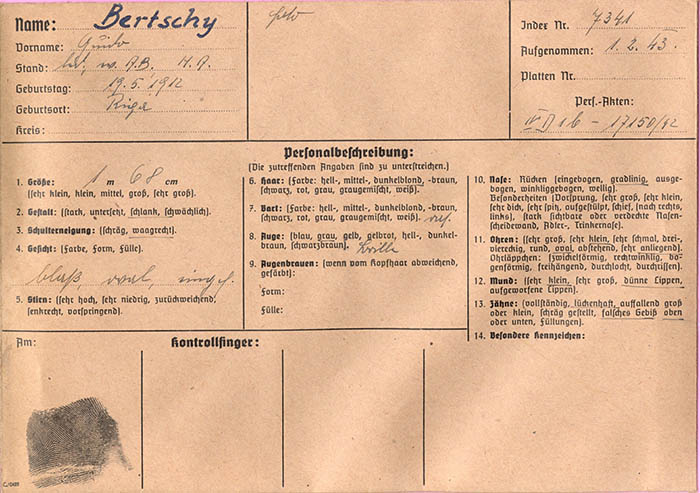 Name: Bertschy
Vorname: Guido
Stand: led. w. A.B. H.A.
Geburtstag: 19.5.1912
Geburtsort: Riga
Kreis:
Index Nr. 7341
Aufgenommen: 1.2.43.
Platten Nr.
Pers.-Akten:
IV D 1 b - 17150/42
Personalbeschreibung:
(Die zutreffenden Angaben sind zu unterstreichen.)
1. Größe: 1 m 68 cm
(sehr klein, klein, mittel, groß, sehr groß).
2. Gestalt: (stark, untersetzt, schlank, schwächlich).
3. Schulterneigung: (schräg, waagrecht).
4. Gesicht: (Farbe, Form, Fülle).
blaß, oval,
5. Stirn: (sehr hoch, sehr niedrig, zurückweichend,
senkrecht, vorspringend).
6. Haar: (Farbe: hell-, mittel-, dunkelblond, -braun,
schwarz, rot, grau, graugemischt, weiß).
7. Bart: (Farbe: hell-, mittel-, dunkelblond, -braun,
schwarz, rot, grau, graugemischt, weiß).
8. Auge: (blau, grau, gelb, gelbrot, hell-, dunkel-
braun, schwarzbraun). Brille
9. Augenbrauen: (wenn vom Kopfhaar abweichend,
gefärbt):
Form:
Fülle:
10. Nase: Rücken (eingebogen, gradlinig, ausge-
bogen, winkliggebogen, wellig).
Besonderheiten (Vorsprung, sehr groß, sehr klein,
sehr dick, sehr spitz, aufgestülpt, schief, (nach rechts,
links), stark sichtbare oder verdeckte Nasen-
scheidewand, Adler-, Trinkernase).
11. Ohren: (sehr groß, sehr klein, sehr schmal, drei-,
viereckig, rund, oval, abstehend, sehr anliegend).
Ohrläppchen: (zwickelförmig, rechtwinklig, bo-
genförmig, freihängend, durchlocht, durchrissen).
12. Mund: (sehr klein, sehr groß, dünne Lippen,
aufgeworfene Lippen).
13. Zähne: (vollständig, lückenhaft, auffallend groß
oder klein, schräg gestellt, falsches Gebiß oben
oder unten, Füllungen).
14. Besondere Kennzeichen:
Am:
Kontrollfinger: